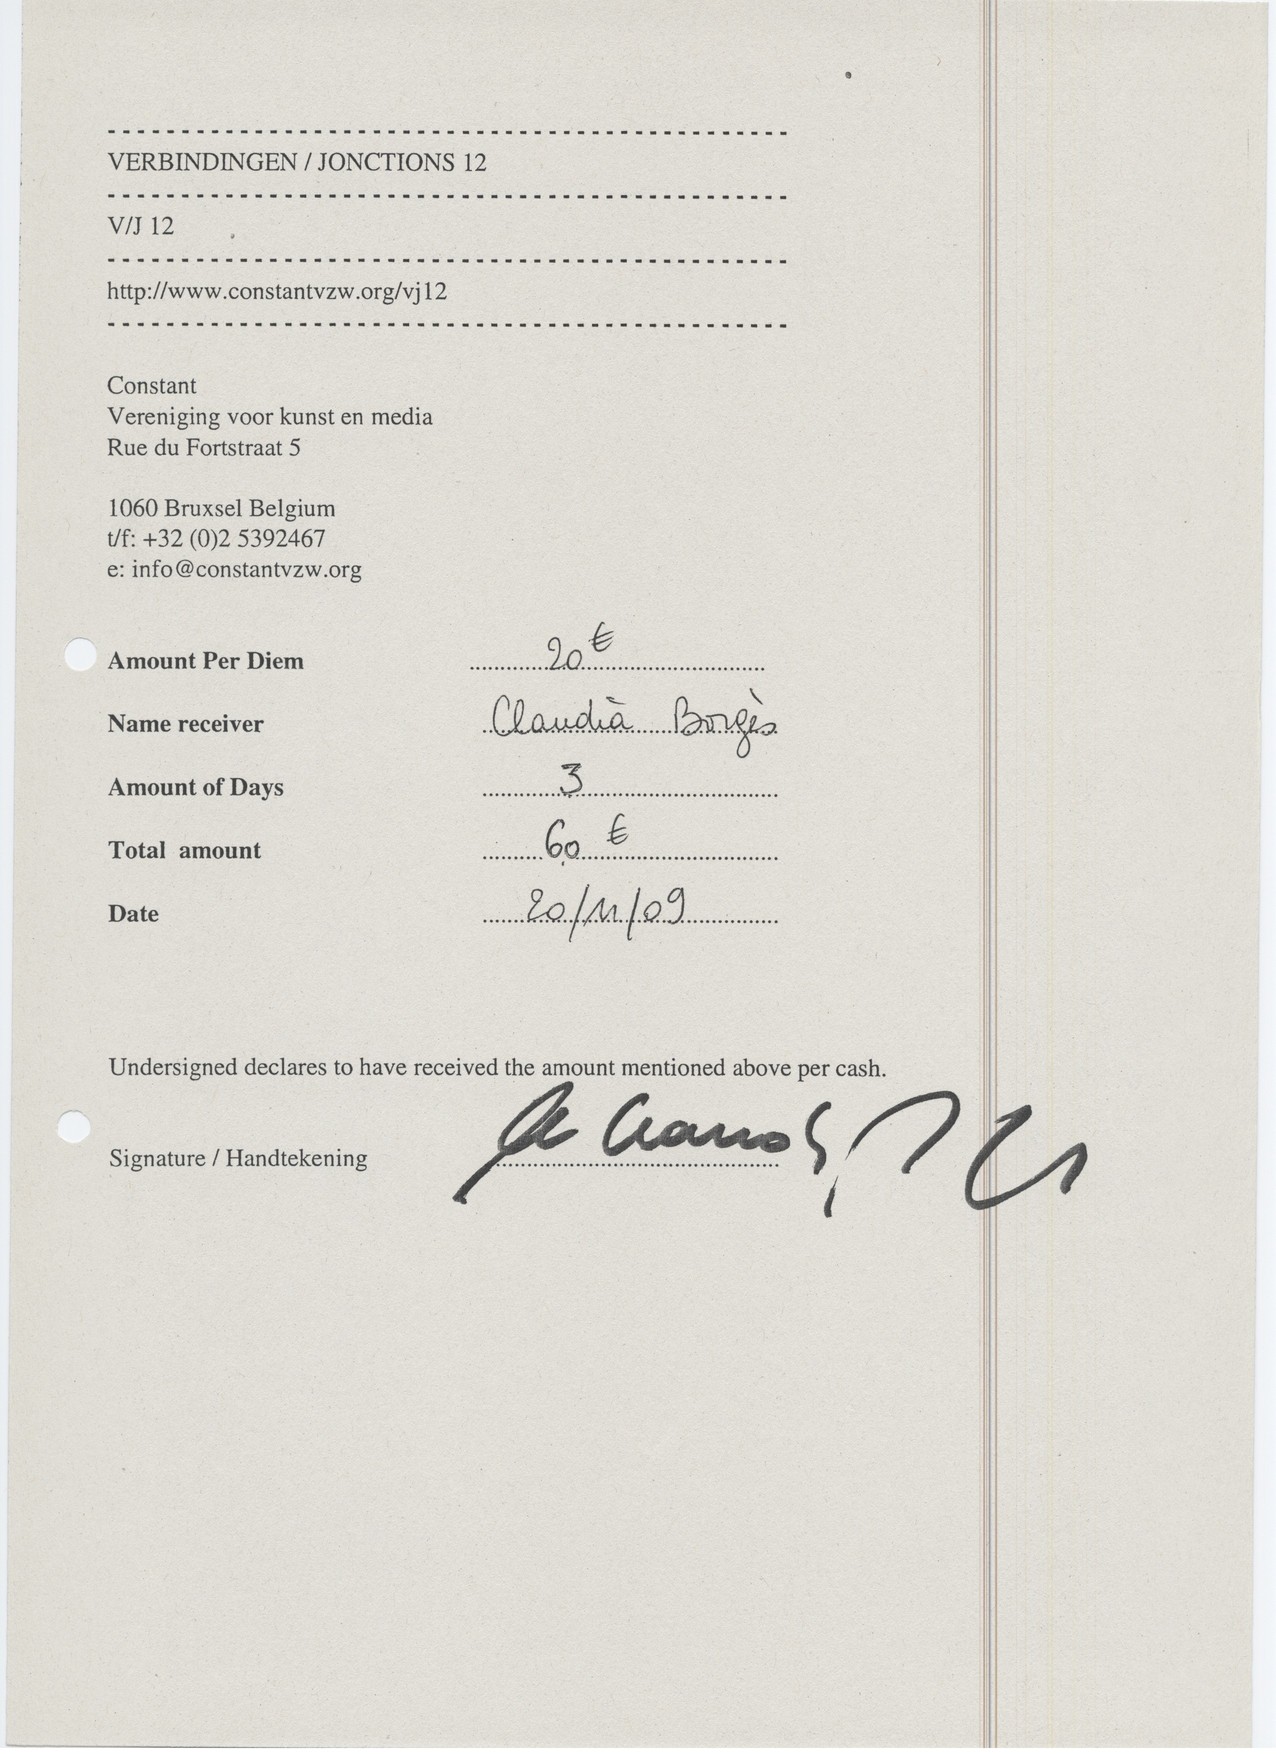 VERBINDINGEN / JONCTIONS 12
V/J 12
http://www.constantvzw.org/vj12
Constant
Vereniging voor kunst en media
Rue du Fortstraat 5
1060 Bruxsel Belgium
t/f: +32 (0)2 5392467
e: info@constantvzw.org
Amount Per Diem 20 €
Name receiver Claudià Borgès
Amount of Days 3
Total amount 60 €
Date 20/11/09
Undersigned declares to have received the amount mentioned above per cash.
Signature / Handtekening